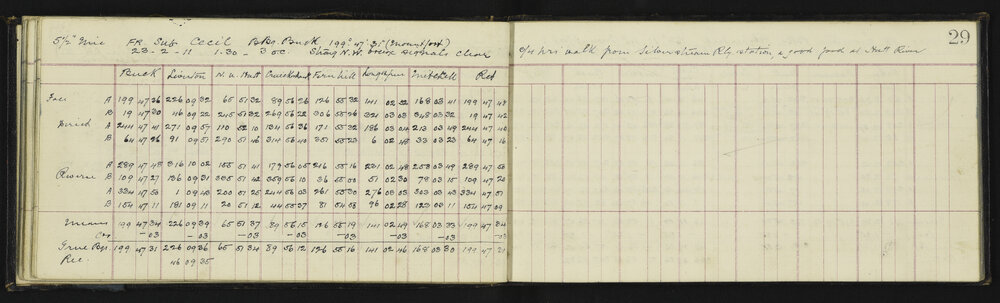 5½" Eric FR. Sub. Cecil Brg. Buck 199° 47' 31" (Mountfort) 29
23-2-11 1.30-3 oc Strong N.W. breeze Signals Clear
hrs walk from Silverstream Rly station, a good ford at Hutt River
Buck N.W. Butt Fern Hill Mitchell Ref
Face A 199 47 36 226 09 32 65 51 32 89 56 26 126 55 32 141 02 52 168 03 41 199 47 48
B 19 47 30 46 09 22 245 51 32 269 56 22 306 55 26 321 03 03 348 03 32 19 47 42
A 244 47 41 271 09 57 110 52 10 134 56 36 171 55 32 186 03 04 213 03 49 244 47 40
B 64 47 26 91 09 51 290 51 46 314 56 40 351 55 23 6 02 48 33 03 23 64 47 16
Reverse A 289 47 48 316 10 02 155 51 41 179 56 05 216 55 16 231 02 48 258 03 49 289 47 53
B 109 47 27 136 09 31 335 51 42 359 56 10 36 55 00 51 02 30 78 03 15 109 47 20
A 334 47 53 1 09 43 200 51 25 244 56 03 261 55 30 276 03 03 303 03 43 334 47 51
B 154 47 11 181 09 11 20 51 12 44 55 37 81 54 58 96 02 28 123 03 11 154 47 09
Means 199 47 34 226 09 39 65 51 37 89 56 15 126 55 19 141 02 49 168 03 33 199 47 34
Cor -03 -03 -03 -03 -03 -03 -03
True Bgs. 199 47 31 226 09 36 65 51 34 89 56 12 126 55 16 141 02 46 168 03 30 199 47 31
Rec. 46 09 35